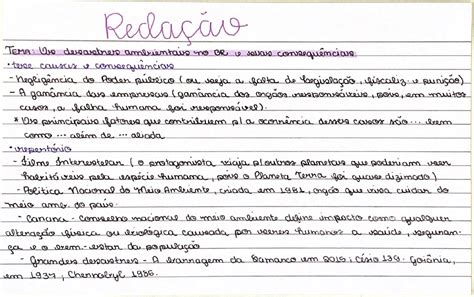 Redação
TEMA: Os desastres ambientais no BR e suas consequências
• tese causas e consequências
- Negligência do Poder público (ou seja a falta de legislação, fiscaliz. e punição)
- A ganância das empresas (ganância dos orgãos responsáveis, pois, em muitos
casos, a falha humana foi responsável).
* Os principais fatores que contribuem p/ a ocorrência desses casos são ... bem
como ... além de ... aliada
• repertório
- Filme Interestelar (o protagonista viaja p/ outros planetas que poderiam ser
habitáveis pela espécie humana, pois o Planeta Terra foi quase dizimado)
- Política Nacional do Meio Ambiente, criada em 1981, orgão que visa cuidar do
meio amb. do país.
- Conama - Conselho nacional do meio ambiente define impacto como qualquer
alteração física ou biológica causada por seres humanos a saúde, seguran-
ça e o bem-estar da população
- Grandes desastres - A barragem da Samarco em 2015; Césio 137. Goiânia,
em 1987; Chernobyl 1986.